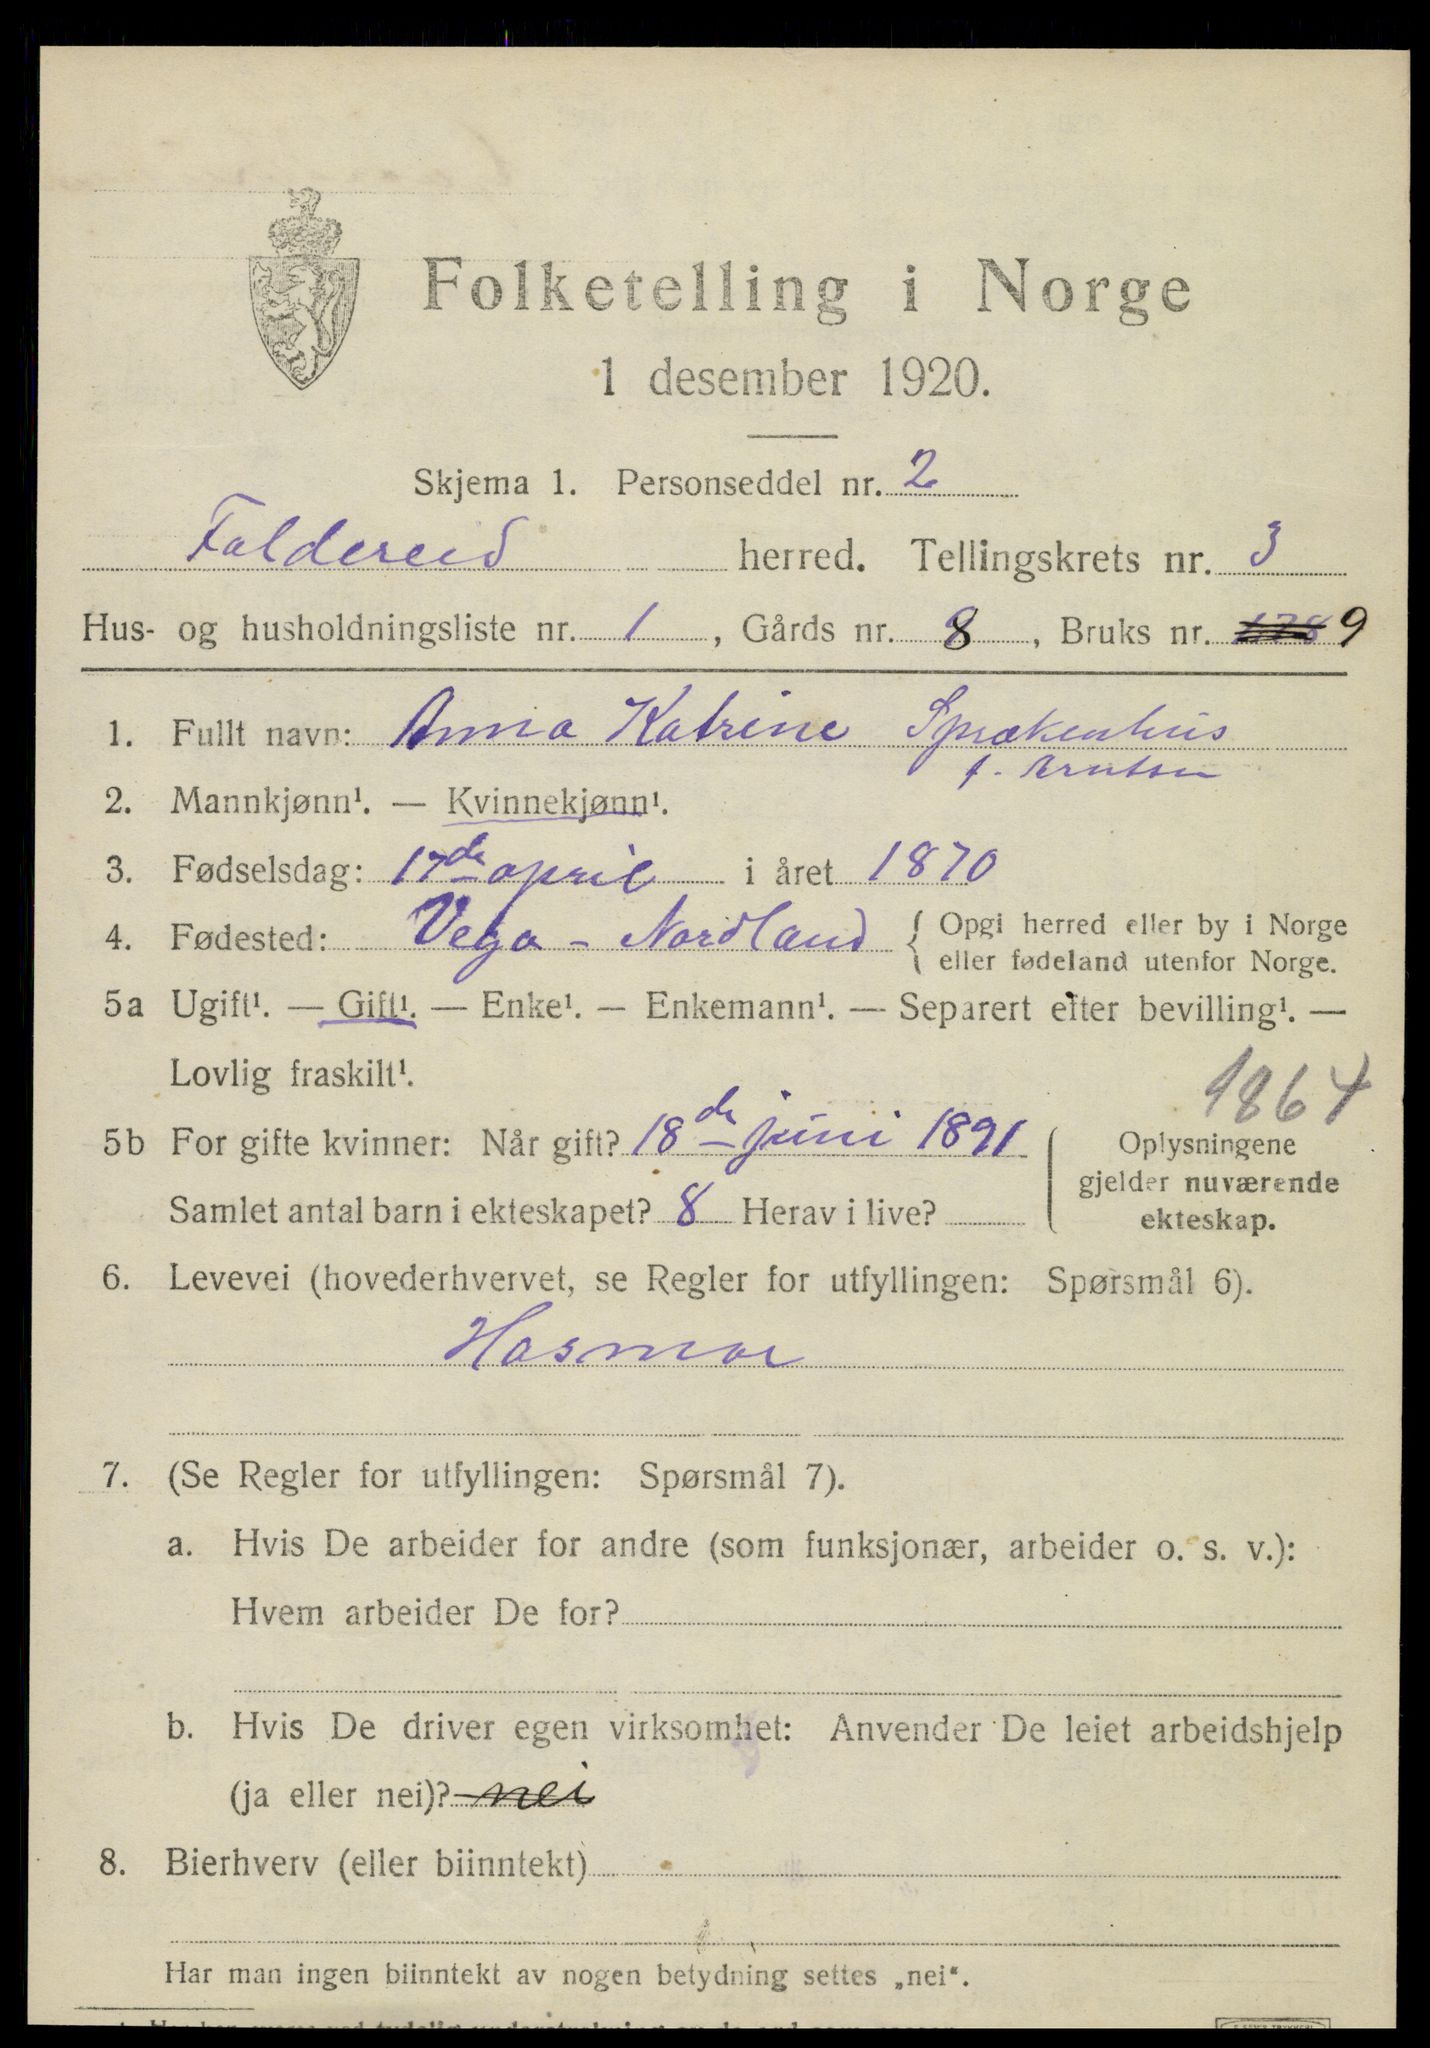 Folketelling i Norge
1 desember 1920.
Skjema 1. Personseddel nr. 2
Foldereid herred. Tellingskrets nr. 3
Hus- og husholdningsliste nr. 1, Gårds nr. 8, Bruks nr. 9
1. Fullt navn: Anna Katrine Sprækenhus
f. Arntsen
2. Mannkjønn¹. — Kvinnekjønn¹.
3. Fødselsdag: 17de april i året 1870
4. Fødested: Vega - Nordland { Opgi herred eller by i Norge
eller fødeland utenfor Norge.
5a Ugift¹. — Gift¹. — Enke¹. — Enkemann¹. — Separert efter bevilling¹. —
Lovlig fraskilt¹.
1864
5b For gifte kvinner: Når gift? 18de juni 1891
Samlet antal barn i ekteskapet? 8 Herav i live?
Oplysningene
gjelder nuværende
ekteskap.
6. Levevei (hovederhvervet, se Regler for utfyllingen: Spørsmål 6).
Hosmor
7. (Se Regler for utfyllingen: Spørsmål 7).
a. Hvis De arbeider for andre (som funksjonær, arbeider o. s. v.):
Hvem arbeider De for?
b. Hvis De driver egen virksomhet: Anvender De leiet arbeidshjelp
(ja eller nei)? nei
8. Bierhverv (eller biinntekt)
Har man ingen biinntekt av nogen betydning settes „nei“.